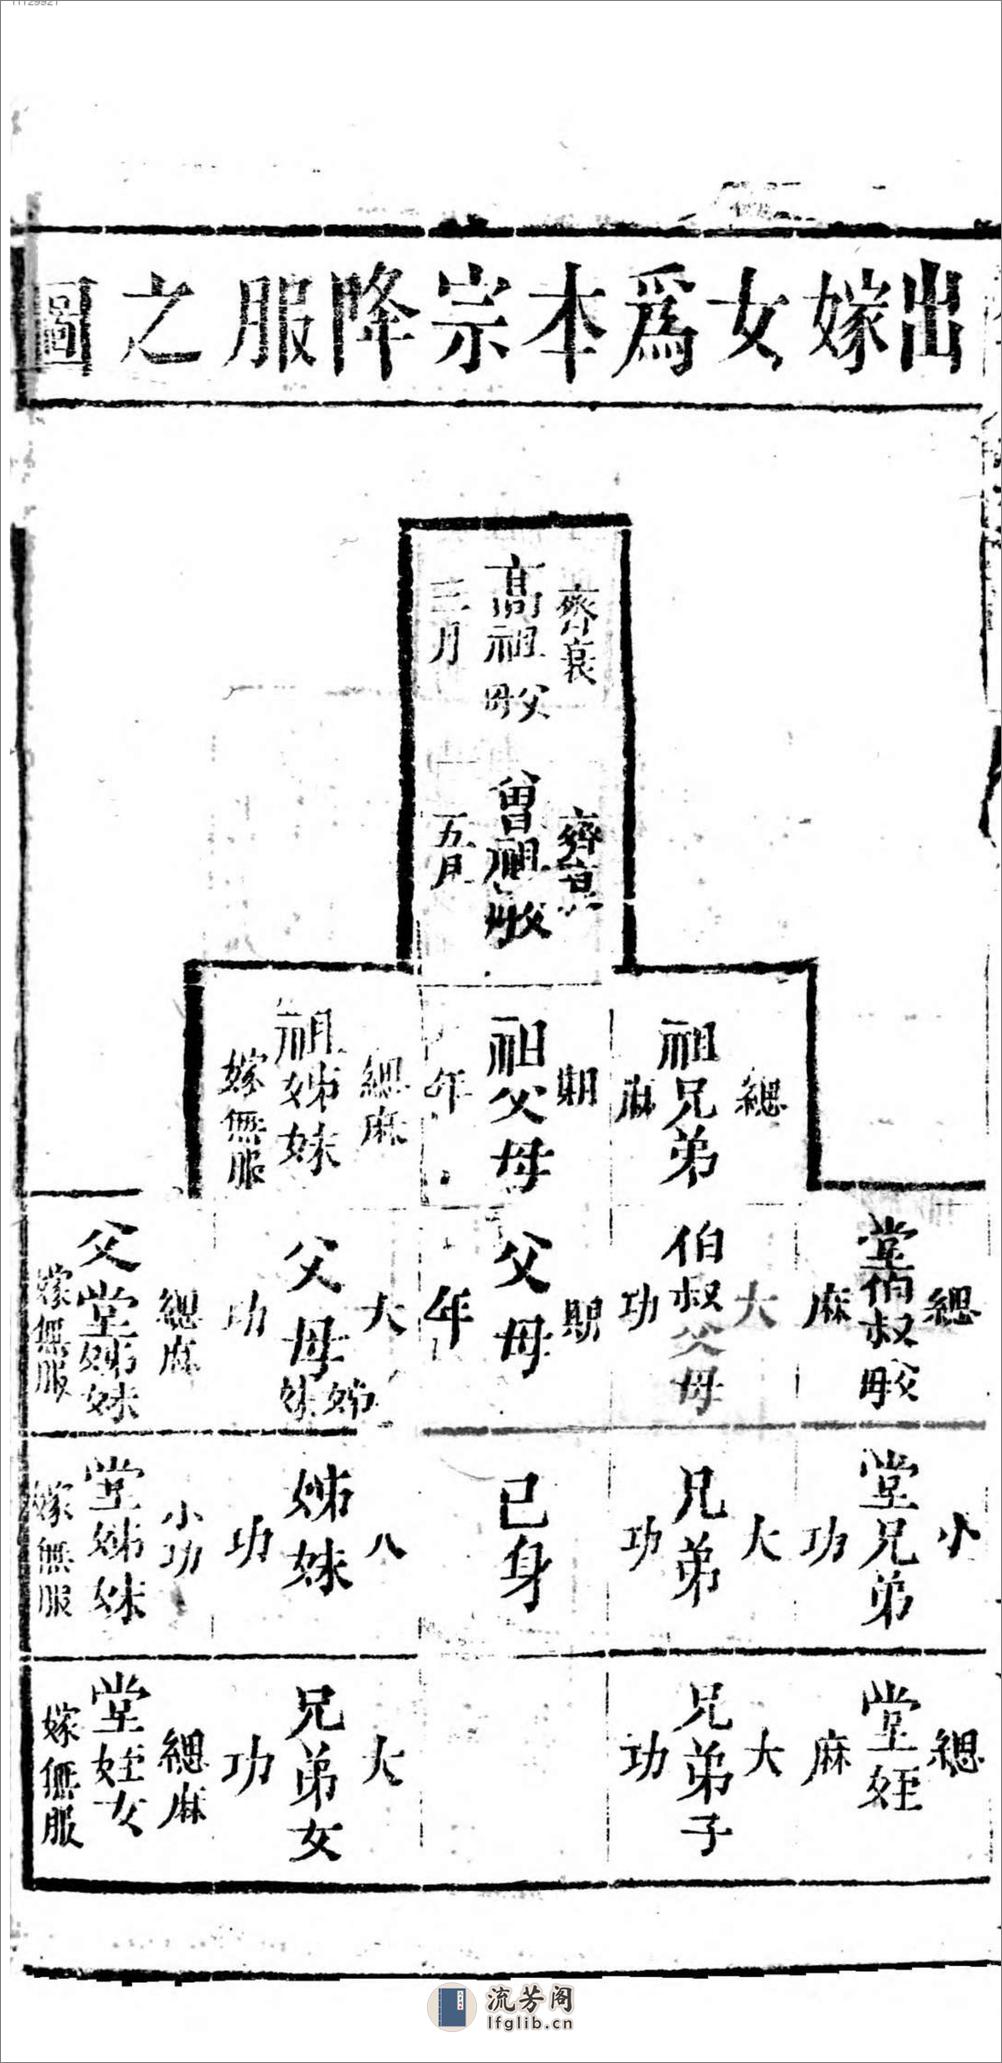 出嫁女爲本宗降服之圖
齊衰
高祖父母
三月
齊衰
曾祖父母
五月
緦
祖兄弟
麻
期
祖父母
年
緦麻
祖姊妹
嫁無服
緦
堂伯叔父母
麻
大
伯叔父母
功
期
父母
年
大
父母姊妹
功
緦麻
父堂姊妹
嫁無服
小
堂兄弟
功
大
兄弟
功
已身
姊妹
功
小功
堂姊妹
嫁無服
緦
堂姪
麻
大
兄弟子
功
大
兄弟女
功
緦麻
堂姪女
嫁無服
流芳阁
lfglib.cn